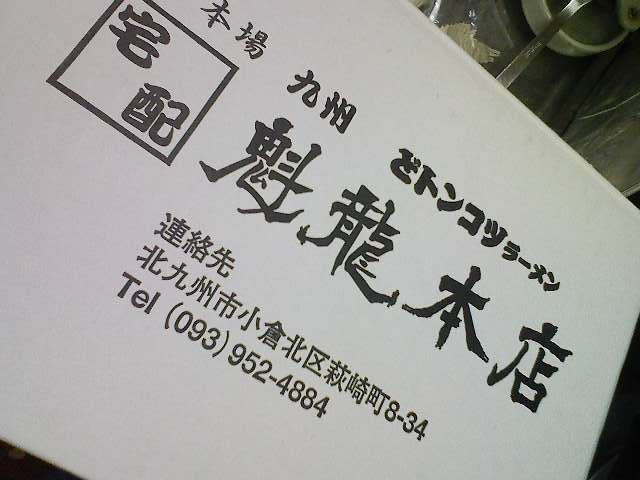 宅配
本場 九州 どトンコツラーメン
魁龍本店
連絡先
北九州市小倉北区萩崎町8-34
Tel (093) 952-4884